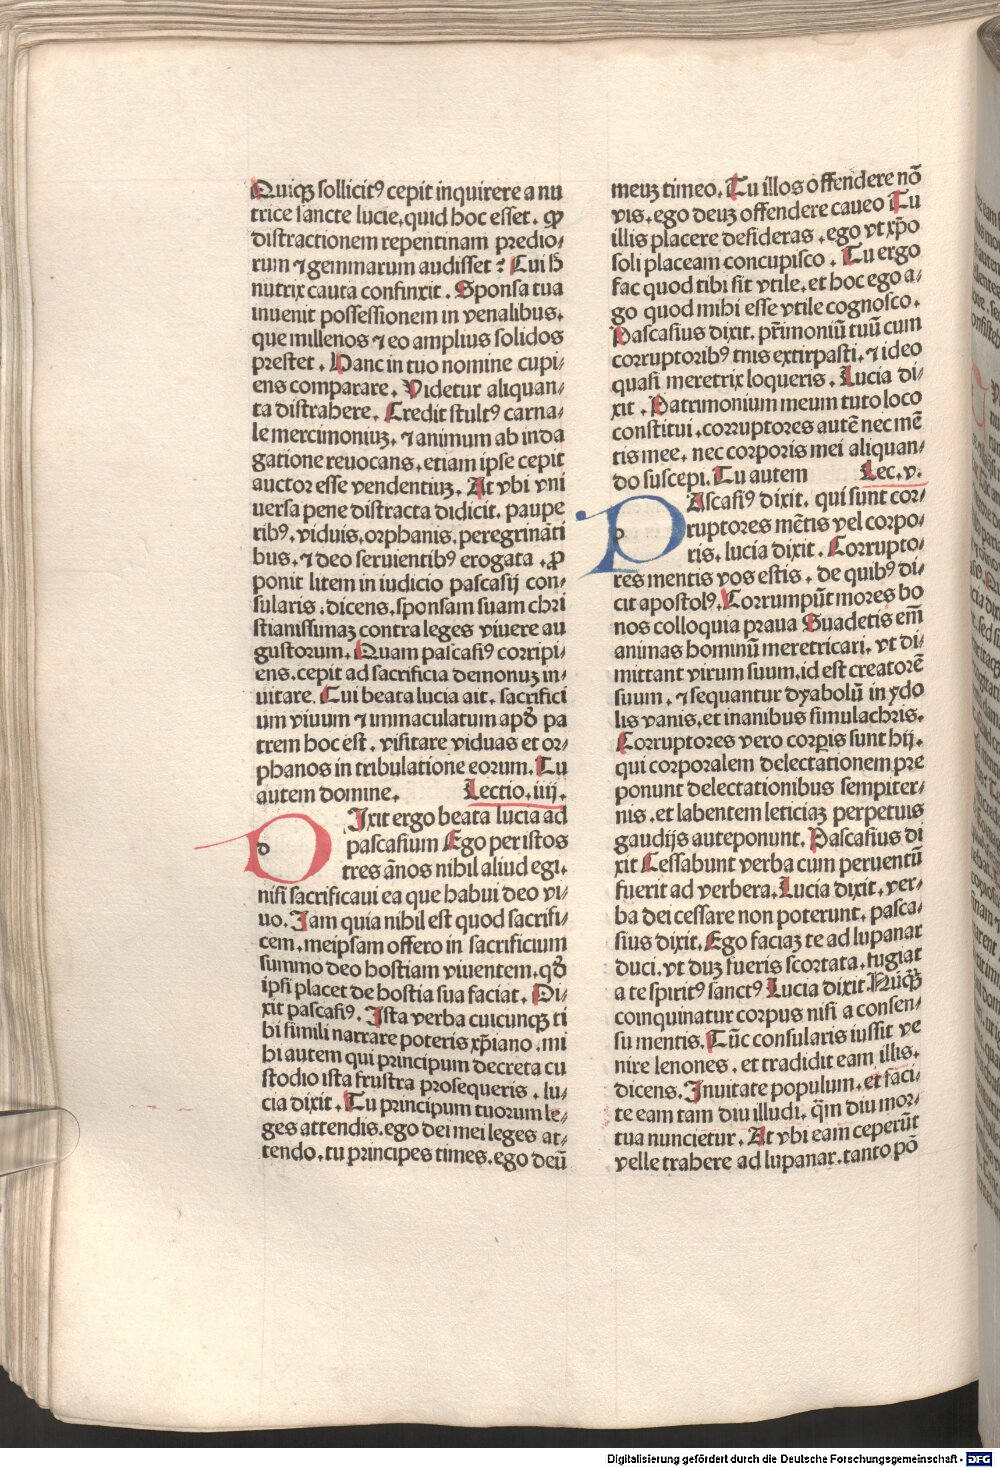 Quiqꝫ sollicitꝰ cepit inquirere a nu
trice sancte lucie, quid hoc esset. qꝓ
distractionem repentinam predio⸗
rum ⁊ gemmarum audisset? Cui h̄
nutrix cauta confinxit. Sponsa tua
inuenit possessionem in venalibus.
que millenos ⁊ eo amplius solidos
prestet. Hanc in tuo nomine cupi⸗
ens comparare. Videtur aliquan⸗
ta distrahere. Credit stultꝰ carna⸗
le mercimoniuꝫ. ⁊ animum ab inda
gatione reuocans. etiam ipse cepit
auctor esse vendentiuꝫ. At vbi vni
uersa pene distracta didicit. paupe
ribꝰ. viduis. orphanis. peregrinãti
bus. ⁊ deo seruientibꝰ erogata. ꝓ
ponit litem in iudicio pascasij con⸗
sularis: dicens. sponsam suam chri
stianissimaꝫ contra leges viuere au
gustorum. Quam pascasiꝰ corripi⸗
ens. cepit ad sacrificia demonuꝫ in⸗
uitare. Cui beata lucia ait. sacrifici
um viuum ⁊ immaculatum apđ pa
trem hoc est. visitare viduas et or⸗
phanos in tribulatione eorum. Tu
autem domine. Lectio. iiij.
DIxit ergo beata lucia ad
pascasium Ego per istos
tres ãnos nihil aliud egi.
nisi sacrificaui ea que habui deo vi⸗
uo. Jam quia nihil est quod sacrifi⸗
cem. meipsam offero in sacrificium
summo deo hostiam viuentem. qđ
ipsi placet de hostia sua faciat. Di⸗
xit pascasiꝰ. Ista verba cuicunqꝫ ti
bi simili narrare poteris xp̃iano. mi
hi autem qui principum decreta cu
stodio ista frustra prosequeris. lu⸗
cia dixit. Tu principum tuorum le⸗
ges attendis. ego dei mei leges at⸗
tendo. tu principes times. ego deũ
meuꝫ timeo. Tu illos offendere nõ
vis. ego deuꝫ offendere caueo Tu
illis placere desideras. ego vt xp̃o
soli placeam concupisco. Tu ergo
fac quod tibi sit vtile. et hoc ego a⸗
go quod mihi esse vtile cognosco.
Pascasius dixit. pr̃imoniũ tuũ cum
corruptoribꝰ tuis extirpasti. ⁊ ideo
quasi meretrix loqueris. Lucia di⸗
xit. Patrimonium meum tuto loco
constitui. corruptores autẽ nec mẽ
tis mee. nec corporis mei aliquan⸗
do suscepi. Tu autem Lec. v.
PAscasiꝰ dixit. qui sunt cor⸗
ruptores mẽtis vel corpo⸗
ris. lucia dixit. Corrupto⸗
res mentis vos estis. de quibꝰ di⸗
cit apostolꝰ. Corrumpũt mores bo
nos colloquia praua Suadetis em̃
animas hominũ meretricari. vt di⸗
mittant virum suum. id est creatorẽ
suum. ⁊ sequantur dyabolũ in ydo
lis vanis. et inanibus simulachris.
Corruptores vero corꝑis sunt hij.
qui corporalem delectationem pre
ponunt delectationibus sempiter⸗
nis. et labentem leticiaꝫ perpetuis
gaudijs anteponunt. Pascasius di
xit Cessabunt verba cum peruentũ
fuerit ad verbera. Lucia dixit. ver⸗
ba dei cessare non poterunt. pasca⸗
sius dixit. Ego faciaꝫ te ad lupanar
duci. vt duꝫ fueris scortata. fugiat
a te spiritꝰ sanctꝰ Lucia dixit. Nũqꝫ̃
coinquinatur corpus nisi a consen⸗
su mentis. Tũc consularis iussit ve
nire lenones. et tradidit eam illis.
dicens. Inuitate populum. et faci⸗
te eam tam diu illudi. q̃m diu mor⸗
tua nuncietur. At vbi eam ceperũt
velle trahere ad lupanar. tanto põ
Digitalisierung gefördert durch die Deutsche Forschungsgemeinschaft - DFG